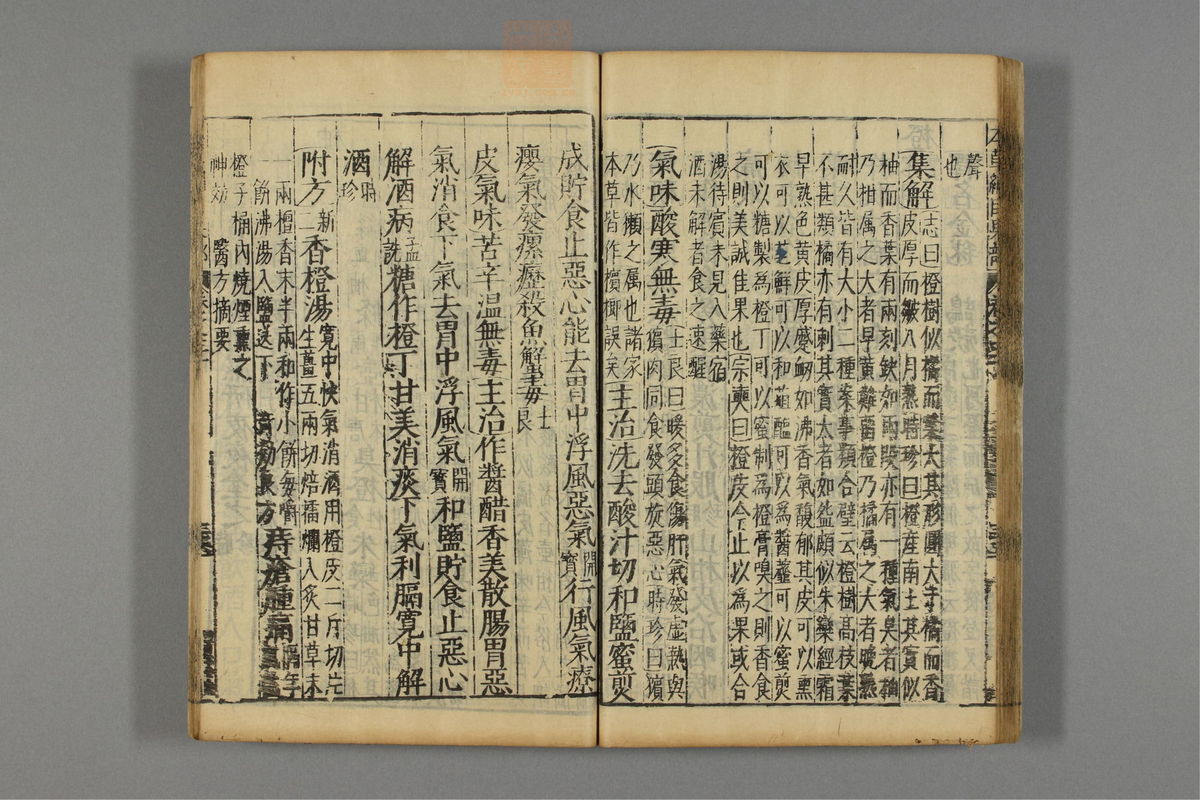 聲
也
集解志曰橙樹似橘而葉大其形圓大于橘而香
皮厚而皺八月熟時珍曰橙産南土其實似
柚而香葉有兩刻缺如兩段亦有一種氣臭者柚
乃柑属之大者早黄難留橙乃橘属之大者晚熟
耐久皆有大小二種案事類合璧云橙樹高枝葉
不甚類橘亦有刺其實大者如盌頗似朱欒經霜
早熟色黄皮厚蹙衂如沸香氣馥郁其皮可以熏
衣可以芼鮮可以和葅醢可以為醬虀可以蜜煎
可以糖製為橙丁可以蜜制為橙膏嗅之則香食
之則美誠佳果也宗奭曰橙皮今止以為果或合
湯待賓未見入藥宿
酒未解者食之速醒
氣味酸寒無毒士良曰暖多食傷肝氣發虚熱與
㺍肉同食發頭旋惡心時珍曰㺍
乃水獺之属也諸家
本草皆作檳榔誤矣主治洗去酸汁切和鹽蜜煎
成貯食止惡心能去胃中浮風惡氣開寶行風氣療
癭氣發瘰癧殺魚鱉毒士良
皮氣味苦辛温無毒主治作醬醋香美散腸胃惡
氣消食下氣去胃中浮風氣開寶和鹽貯食止惡心
解酒病孟詵糖作橙丁甘美消痰下氣利膈寛中解
酒時珍
附方新二香橙湯寛中快氣消酒用橙皮二斤切片
生薑五兩切焙擂爛入炙甘草末
二兩檀香末半兩和作小餅每嚼一
餅沸湯入鹽送下奇効良方痔瘡腫痛隔年
橙子桶内燒煙熏之
神効醫方摘要